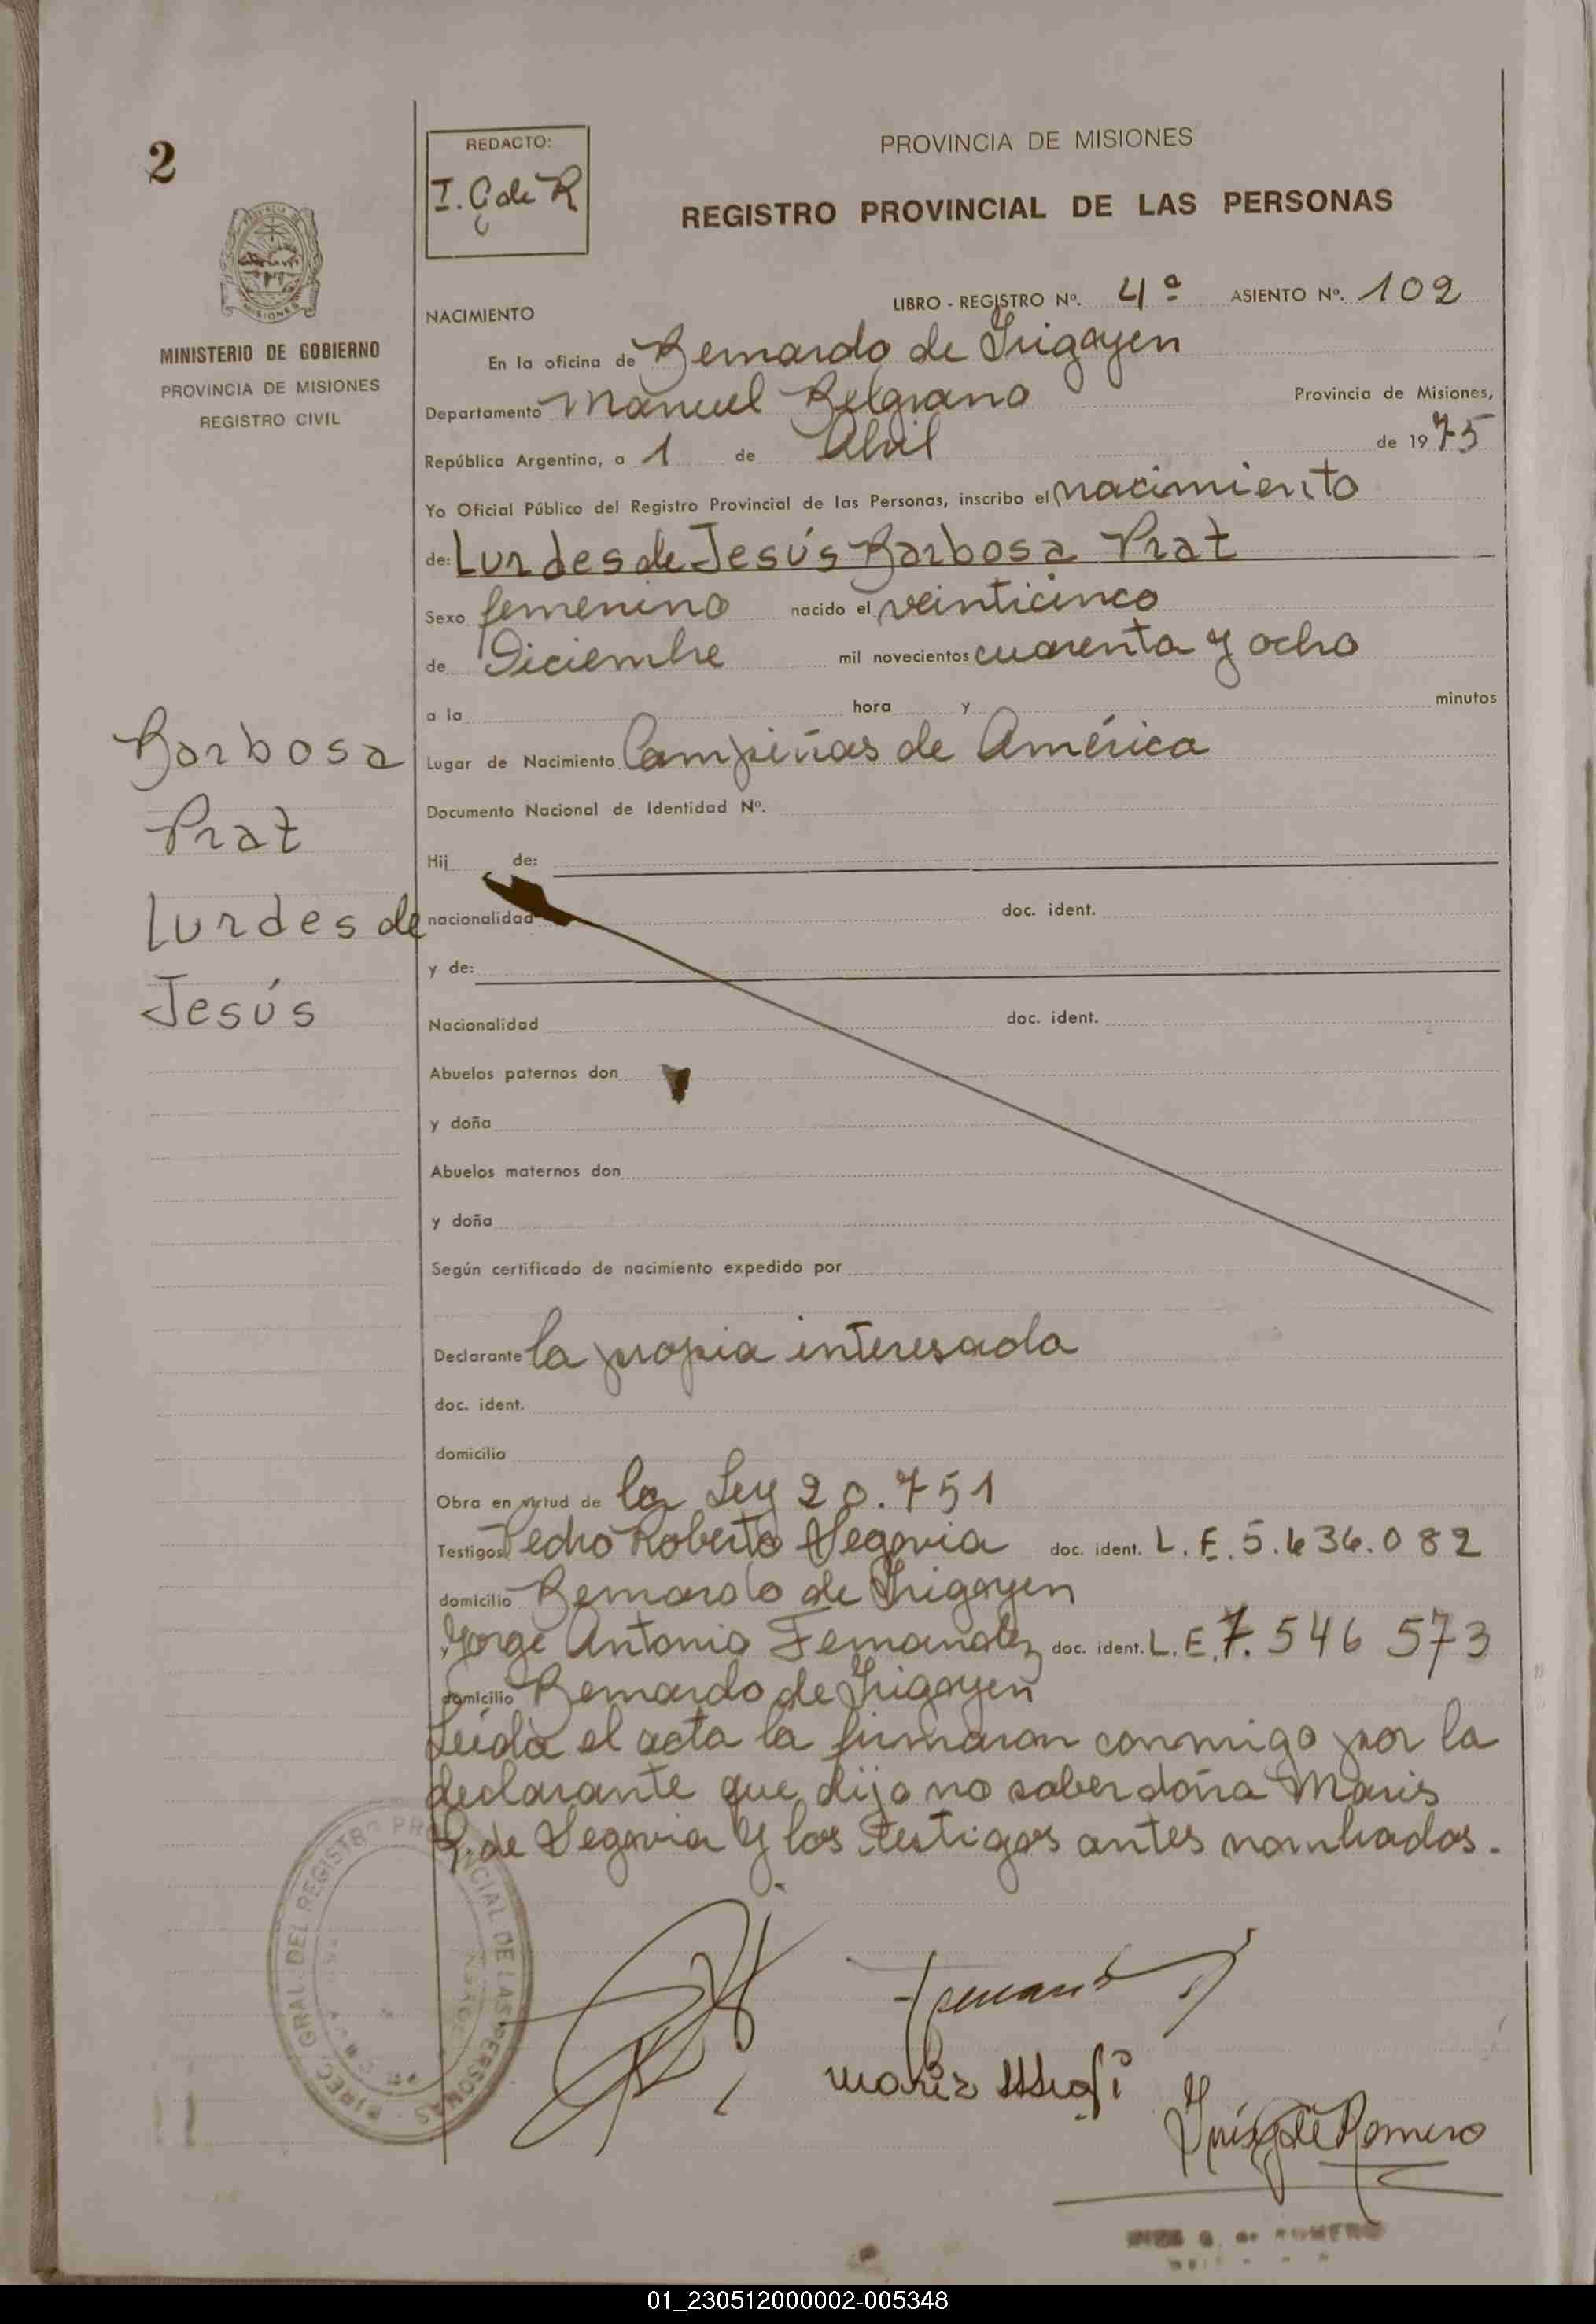 2
REDACTO:
I. G de R
PROVINCIA DE MISIONES
REGISTRO PROVINCIAL DE LAS PERSONAS
MINISTERIO DE GOBIERNO
PROVINCIA DE MISIONES
REGISTRO CIVIL
LIBRO - REGISTRO Nº. 4º ASIENTO Nº. 102
NACIMIENTO
En la oficina de Bernardo de Irigoyen
Departamento Manuel Belgrano Provincia de Misiones,
República Argentina, a 1 de Abril de 1975
Yo Oficial Público del Registro Provincial de las Personas, inscribo el nacimiento
de: Lurdes de Jesús Barbosa Prat
Sexo femenino nacido el veinticinco
de Diciembre mil novecientos cuarenta y ocho
a la hora y minutos
Barbosa
Prat
Lurdes de
Jesús
Lugar de Nacimiento Campiñas de América
Documento Nacional de Identidad Nº.
Hij de:
nacionalidad doc. ident.
y de:
Nacionalidad doc. ident.
Abuelos paternos don
y doña
Abuelos maternos don
y doña
Según certificado de nacimiento expedido por
Declarante la propia interesada
doc. ident.
domicilio
Obra en virtud de la Ley 20.751
Testigos Pedro Roberto Segovia doc. ident. L. E. 5.636.082
domicilio Bernardo de Irigoyen
Jorge Antonio Fernandez doc. ident. L.E. 7.546 573
domicilio Bernardo de Irigoyen
Leída el acta la firmaron conmigo por la
declarante que dijo no saber doña Maris
de Segovia y los testigos antes nombrados.
DIREC. GRAL. DEL REGISTRO PROVINCIAL DE LAS PERSONAS
G. de Romero
G. de ROMERO
01_230512000002-005348